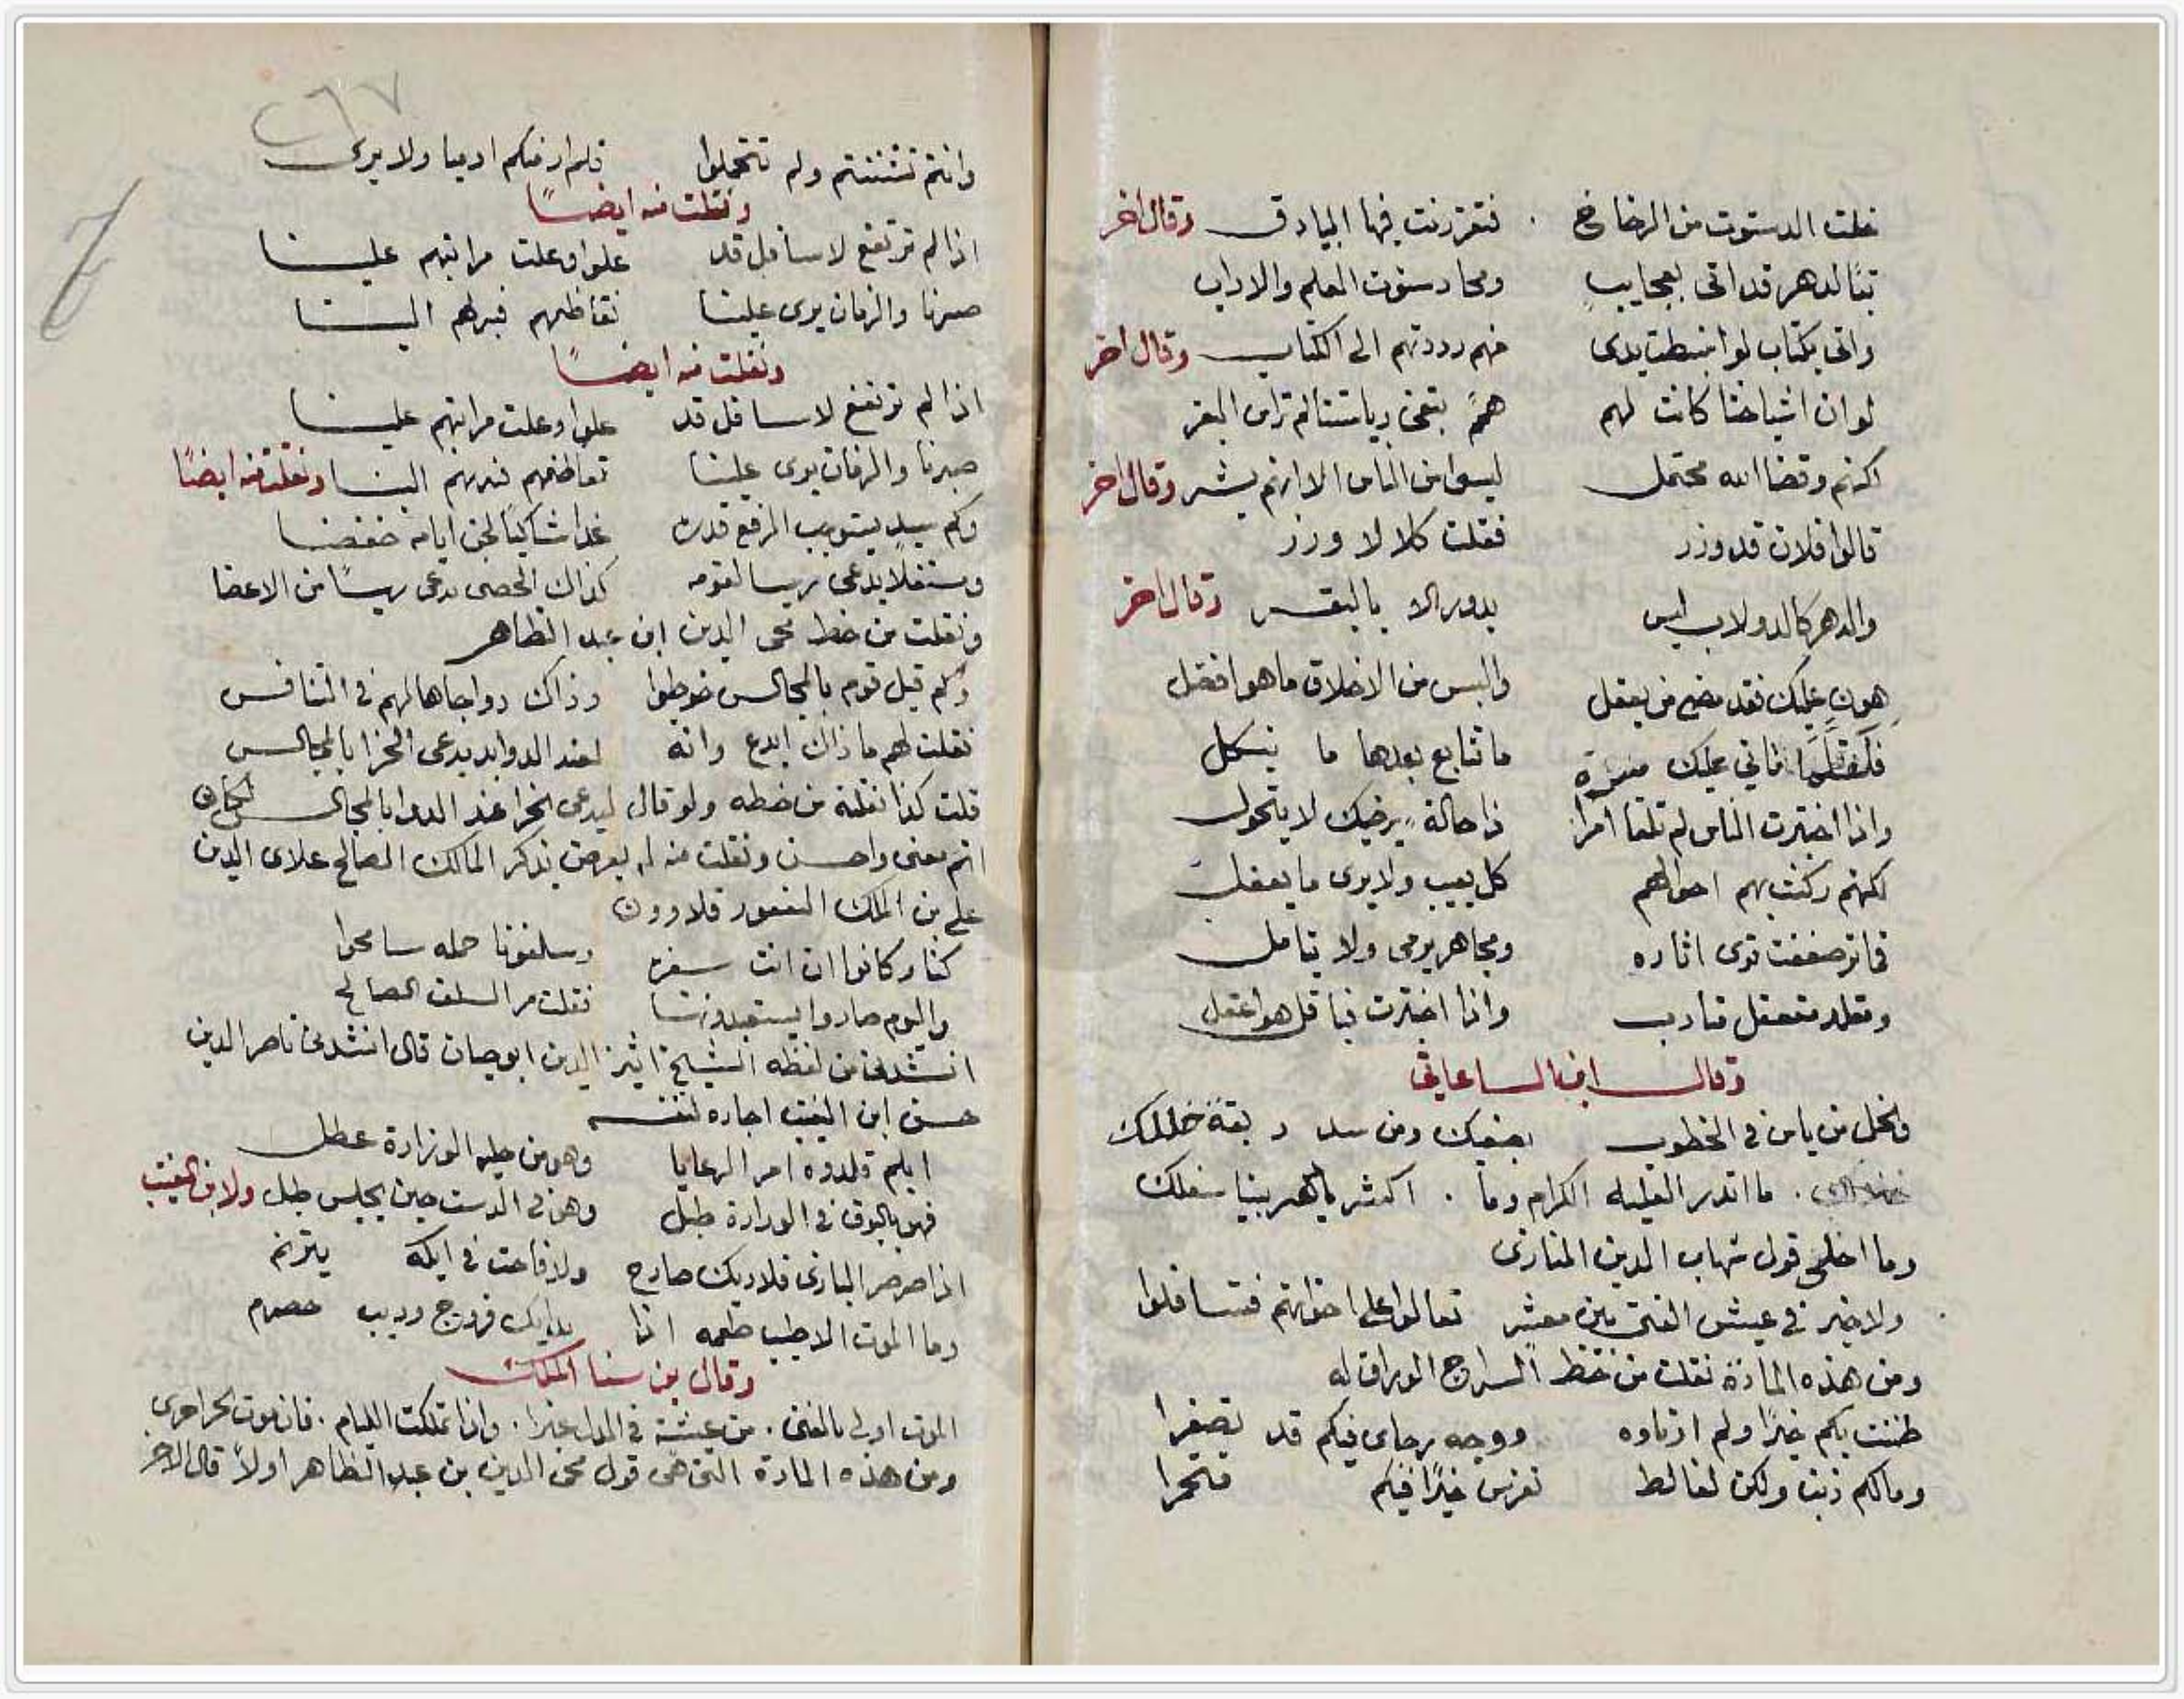 خلت الدسوت من الرخاخ فتفرزنت فيها البيادق وقال اخر
تبًا لدهر قد اتى بعجايب ومحا دسوت العلم والاداب
واتى بكتاب لو انبسطت يدى فهم رددتهم الى الكتاب وقال اخر
لو ان اشياخنا كانت لهم همم
لكنهم وقضا الله محتمل ليسوا من الناس الا انهم بشر وقال اخر
قالوا فلان قد وزر فقلت كلا لا وزر
والدهر كالدولاب ليس يدور الا بالبقر وقال اخر
هون عليك فقد مضى من يعقل والبس من الاخلاق ما هو افضل
فلقلما تاتى عليك مسرة ما تتابع بعدها ما يشكل
واذا اختبرت الناس لم تلقا امرا ذا حالة يرضيك لا يتحول
لكنهم ركنت بهم احوالهم كل يعيب ولا يرى ما يفعل
ترى اثاره ومجاهر يرمى ولا يتامل
واذا اختبرت فباقل هو اعقل
وقال ابن الساعاتى
وتخل من ياس فى الخطوب بضيمك ومن
ما اندر القليله الكرام وما . اكثر يا دهر بيننا سفلك
وما احلى قول شهاب الدين المنازى
ولا خير فى عيش الفتى بين معشر تعالوا على اخوانهم فتسافلوا
ومن هذه المادة نقلت من خط السراج الوراق له
ظننت بكم خيرًا ولم ووجه رجاى فيكم قد تصفرا
ومالكم ذنب ولكن لغالط تفرس خيرًا فيكم
٢٦٧
وانتم ولم تتجملوا فلم ار فيكم
ونقلت منه ايضًا
اذا لم ترتفع لاسافل قد علوا وعلت مراتبهم علينا
صبرنا والزمان يرى علينا الينا
ونقلت منه ايضًا
اذا لم ترتفع لاسافل قد علوا وعلت مراتبهم علينا
صبرنا والزمان يرى علينا الينا ونقلت منه ايضًا
وكم سيد يستوجب الرفع قدره غدا شاكيًا لحن ايامه خفضا
ومستفلا يدعى ريسا لقومه كذاك الخصى يدعى ريسًا من الاعضا
ونقلت من خط محى الدين ابن عبد الظاهر
وكم قيل قوم بالمجالس خوطبوا وذاك دوا جاها لهم فى التنافس
فقلت لهم ما ذاك ابدع وانه لعند الدوا بد يدعى الخرا بالمجالس
قلت كذا نقلته من خطه ولو قال ليدعى الخرا عند الدوا بالمجالس لكان
اتم معنى واحسن ونقلت منه له يعرض بذكر المالك الصالح علاى الدين
على بن الملك المنصور قلاوون
كنا وكانوا ان اتت سفرة وسلفونا جمله سامحوا
واليوم صاروا يستعبدوننا فقلت مر السلف الصالح
انشدنى من لفظه الشيخ اثير الدين ابو حيان قال انشدنى ناصر الدين
حسن ابن النقيب اجازه لنفسه
ابلم قلدوه امر الرعايا وهو من حليه الوزارة عطل
فهو بالبوق فى الوزارة طبل وهو فى الدست حين يجلس طبل ولابن النقيب
اذا صرصر البازى فلا ديك صارخ ولا فاخت فى ايكه يترنم
وما الموت الا طيب طعمه اذا
وقال بن سنا الملك
الموت اولى بالفتى . من عيشة فى الذل غبرا . واذا تملكت الليام . فان موت الحر احرى
ومن هذه المادة التى هى قول محى الدين بن عبد الظاهر اولاً قال الاخر